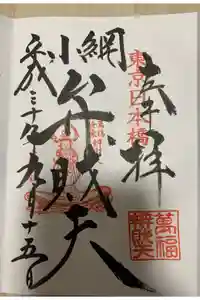 奉拝
東京日本橋
小網
弁財天
平成三十年九月十五日
萬福